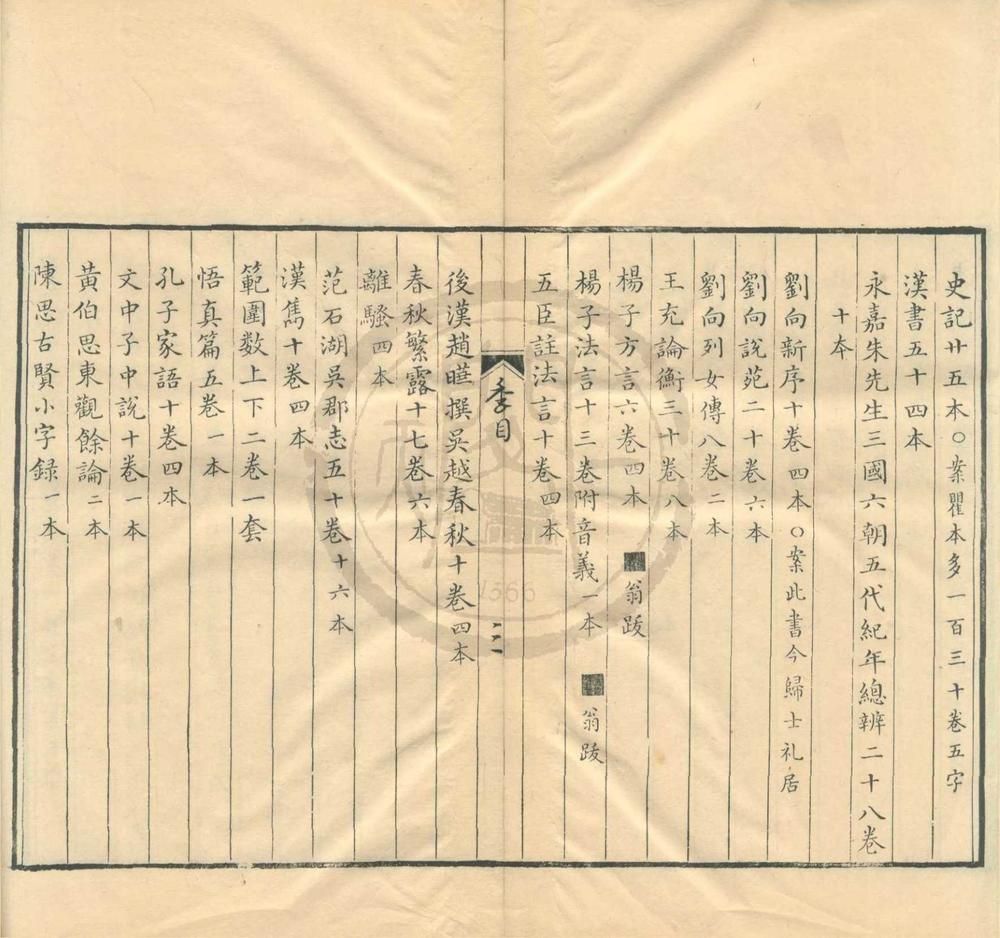 史記廿五本○案瞿本多一百三十卷五字
漢書五十四本
永嘉朱先生三國六朝五代紀年總辨二十八卷
十本
劉向新序十卷四本○案此書今歸士礼居
劉向說苑二十卷六本
劉向列女傳八卷二本
王充論衡三十卷八本
楊子方言六卷四本　■翁跋
楊子法言十三卷附音義一本　■翁跋
五臣註法言十卷四本
季目
二
後漢趙曄撰吳越春秋十卷四本
春秋繁露十七卷六本
離騷四本
范石湖吳郡志五十卷十六本
漢雋十卷四本
範圍数上下二卷一套
悟真篇五卷一本
孔子家語十卷四本
文中子中說十卷一本
黃伯思東觀餘論二本
陳思古賢小字録一本
1566